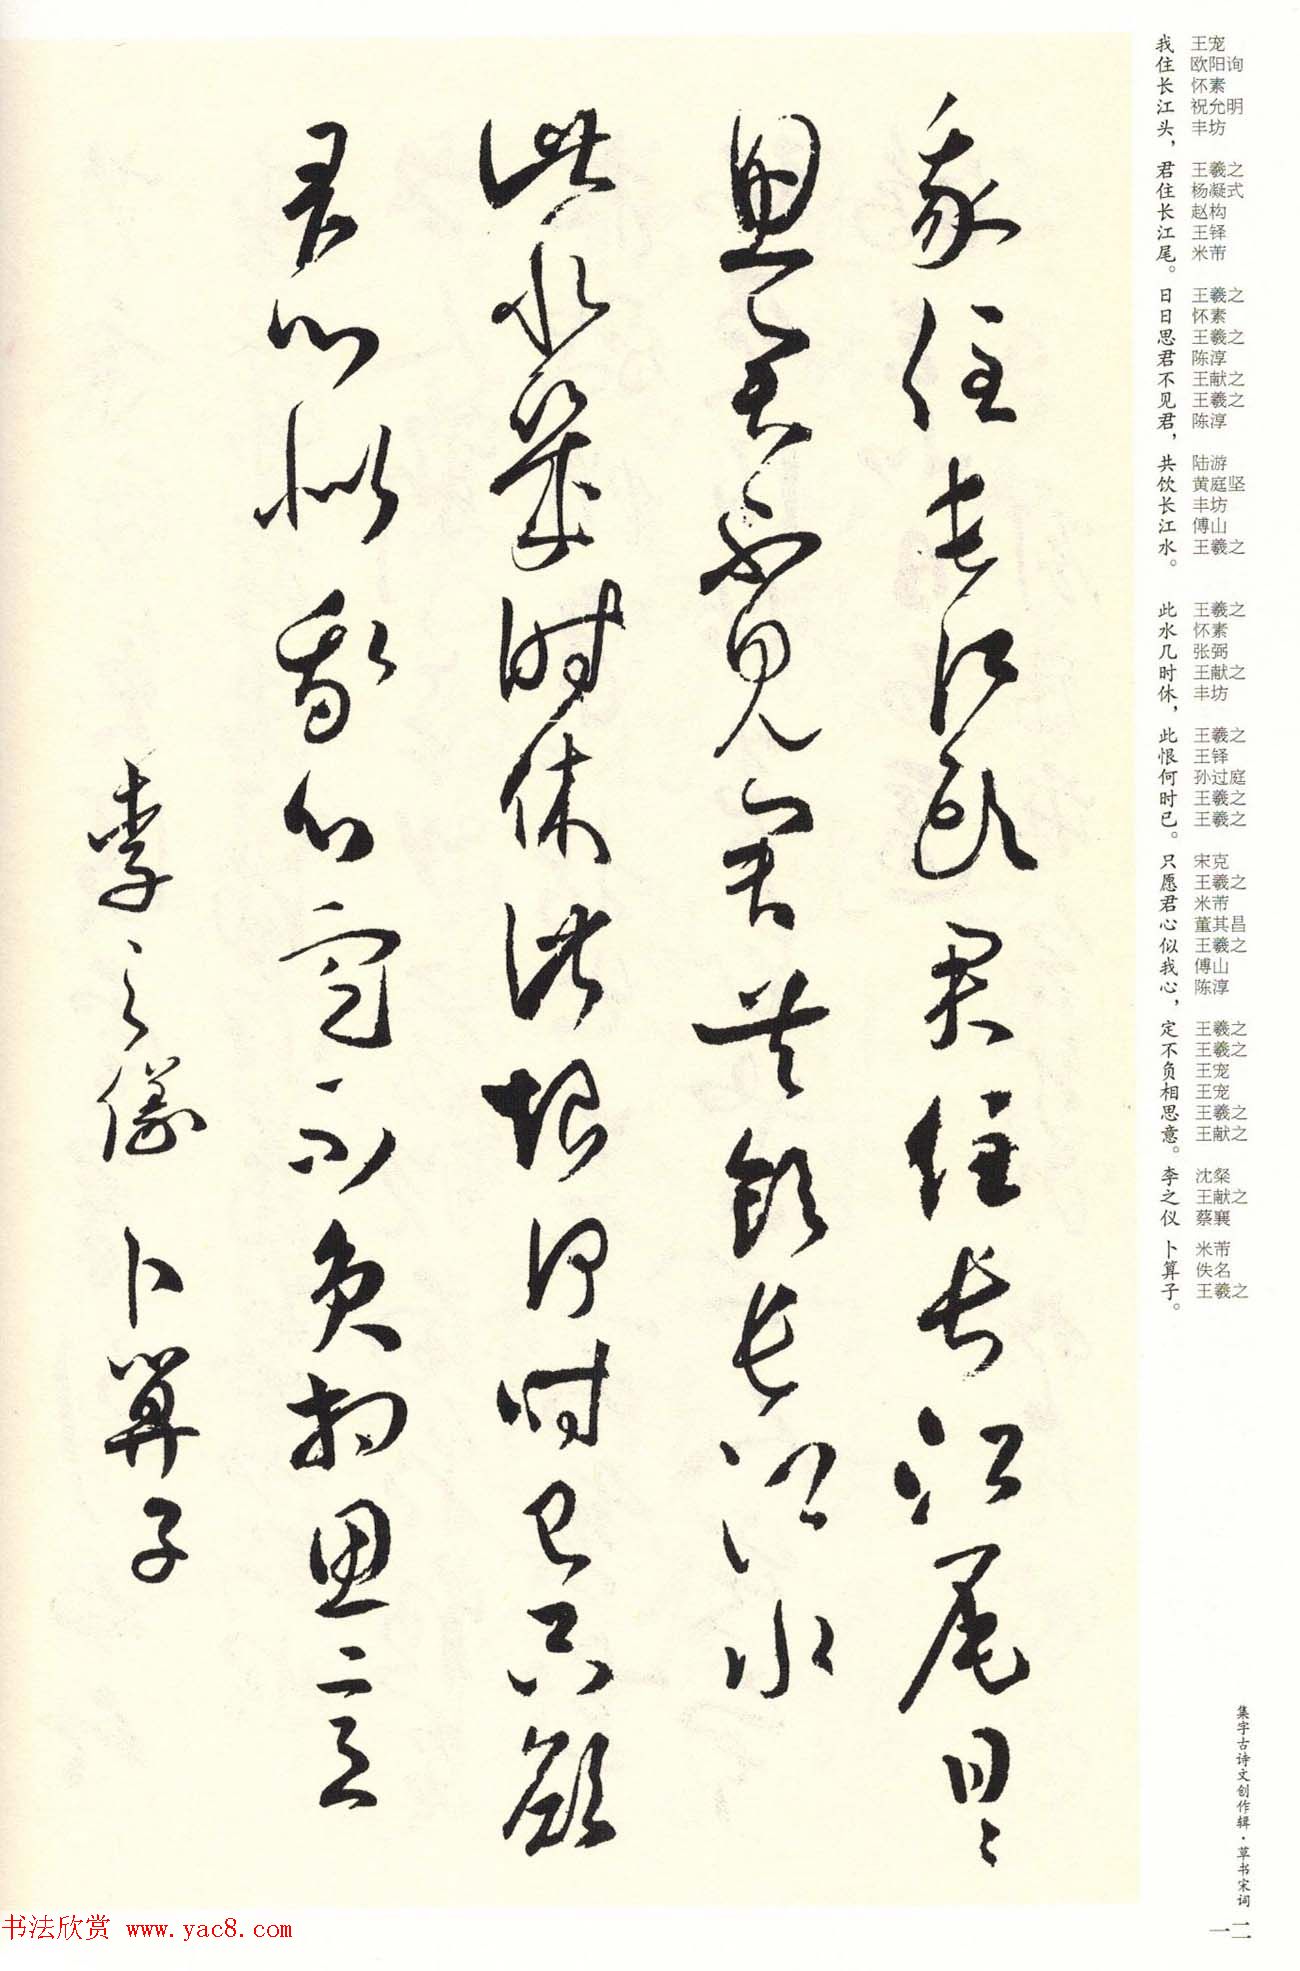 集字古诗文创作辑·草书宋词
一二
王宠 欧阳询 怀素 祝允明 丰坊 王羲之 杨凝式 赵构 王铎 米芾 王羲之 怀素 王羲之 陈淳 王献之 王羲之 陈淳 陆游 黄庭坚 丰坊 傅山 王羲之 王羲之 怀素 张弼 王献之 丰坊 王羲之 王铎 孙过庭 王羲之 王羲之 宋克 王羲之 米芾 董其昌 王羲之 傅山 陈淳 王羲之 王羲之 王宠 王宠 王羲之 王献之 沈粲 王献之 蔡襄 米芾 佚名 王羲之
我住长江头，君住长江尾。日日思君不见君，共饮长江水。 此水几时休，此恨何时已。只愿君心似我心，定不负相思意。李之仪 卜算子。
我住長江頭君住長江尾日々
思君不見君共飲長江水
此水幾時休此恨何時已只願
君心似我心定不負相思意
李之儀 卜算子
书法欣赏 www.yac8.com